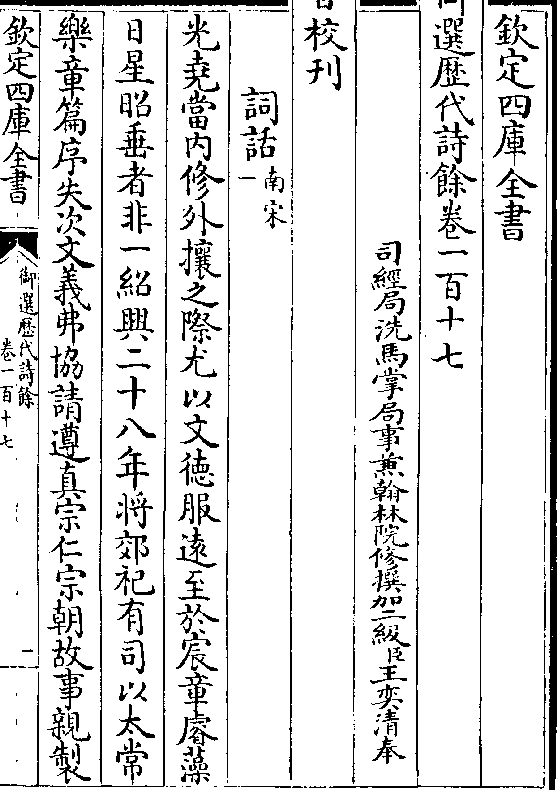 欽定四庫全書
御選歷代詩餘卷一百十七
司經局洗馬掌局事兼翰林院修撰加二級臣王奕清奉
旨校刊
詞話南宋一
光堯當内修外攘之際尤以文徳服遠至於宸章睿藻
日星昭垂者非一紹興二十八年將郊祀有司以太常
樂章篇序失次文義弗協請遵真宗仁宗朝故事親製
欽定四庫全書
御選歷代詩餘
卷一百十七
一